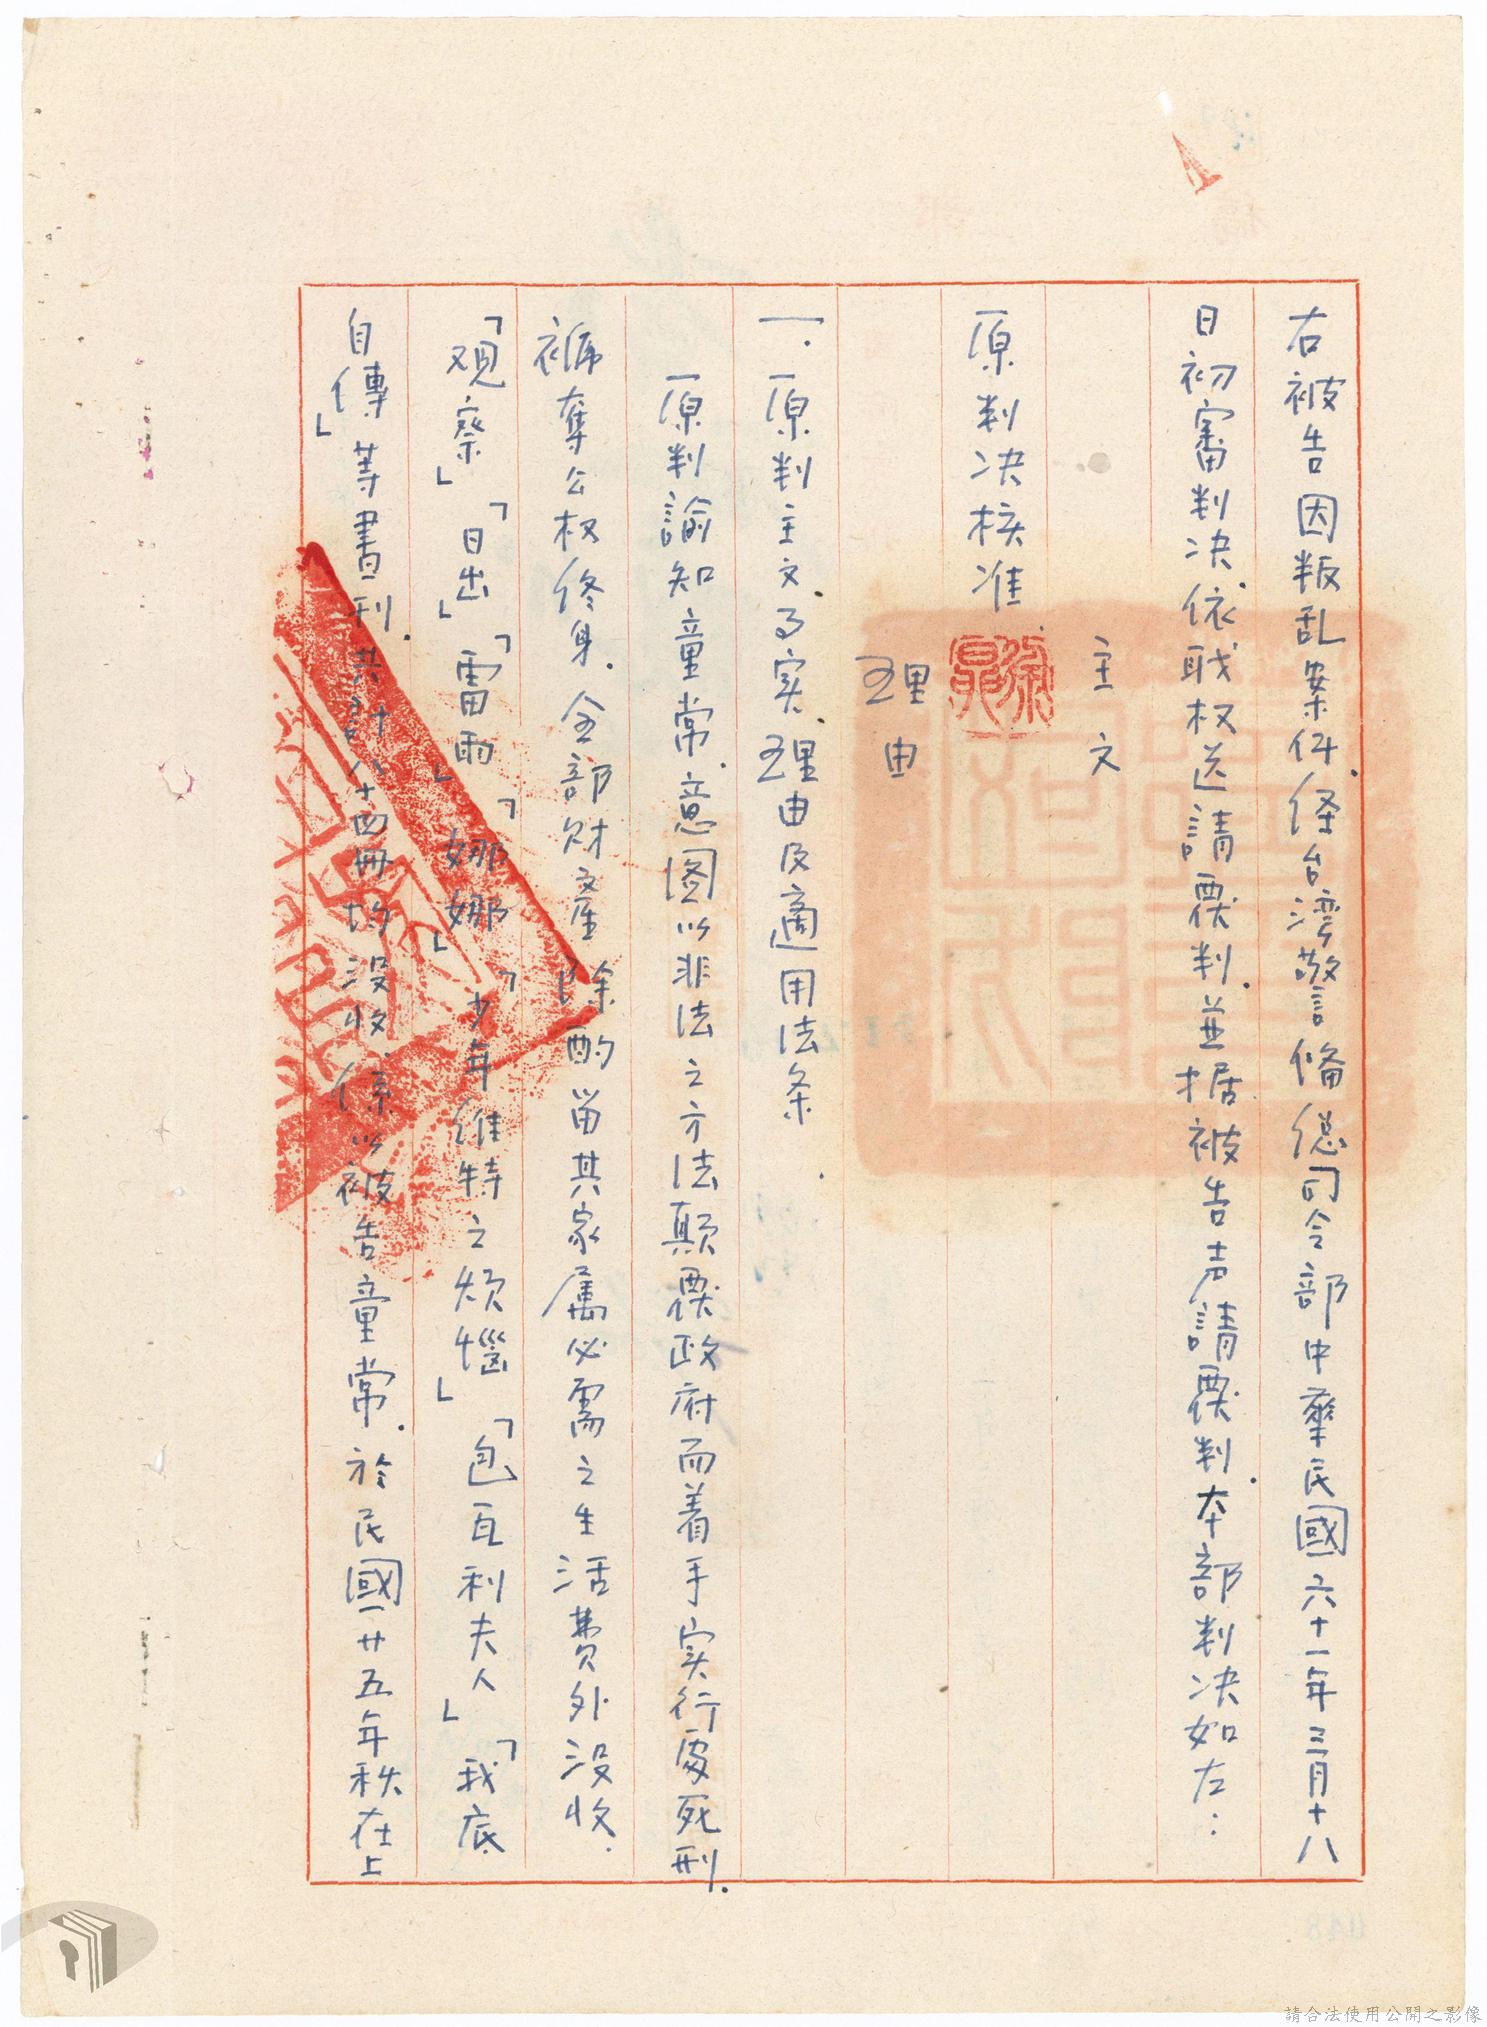 右被告因叛乱案件.經台湾警言备总司令部中華民國六十一年三月十八
日初審判决.依职权送請覆判.並据被告声請覆判.本部判决如左：
主文
原判决核准.
理由
一.原判主文.事实.理由及適用法条.
原判諭知童常.意图以非法之方法顛覆政府而着手实行處死刑.
褫奪公权終身.全部財產除酌留其家屬必需之生活費外没收.
「观察」「日出」「雷雨」「娜娜」「少年維特之煩惱」「包瓦利夫人」「我底
自傳」等書刊.共計八十四冊均没收.係以被告童常.於民國廿五年秋在上
請合法使用公開之影像